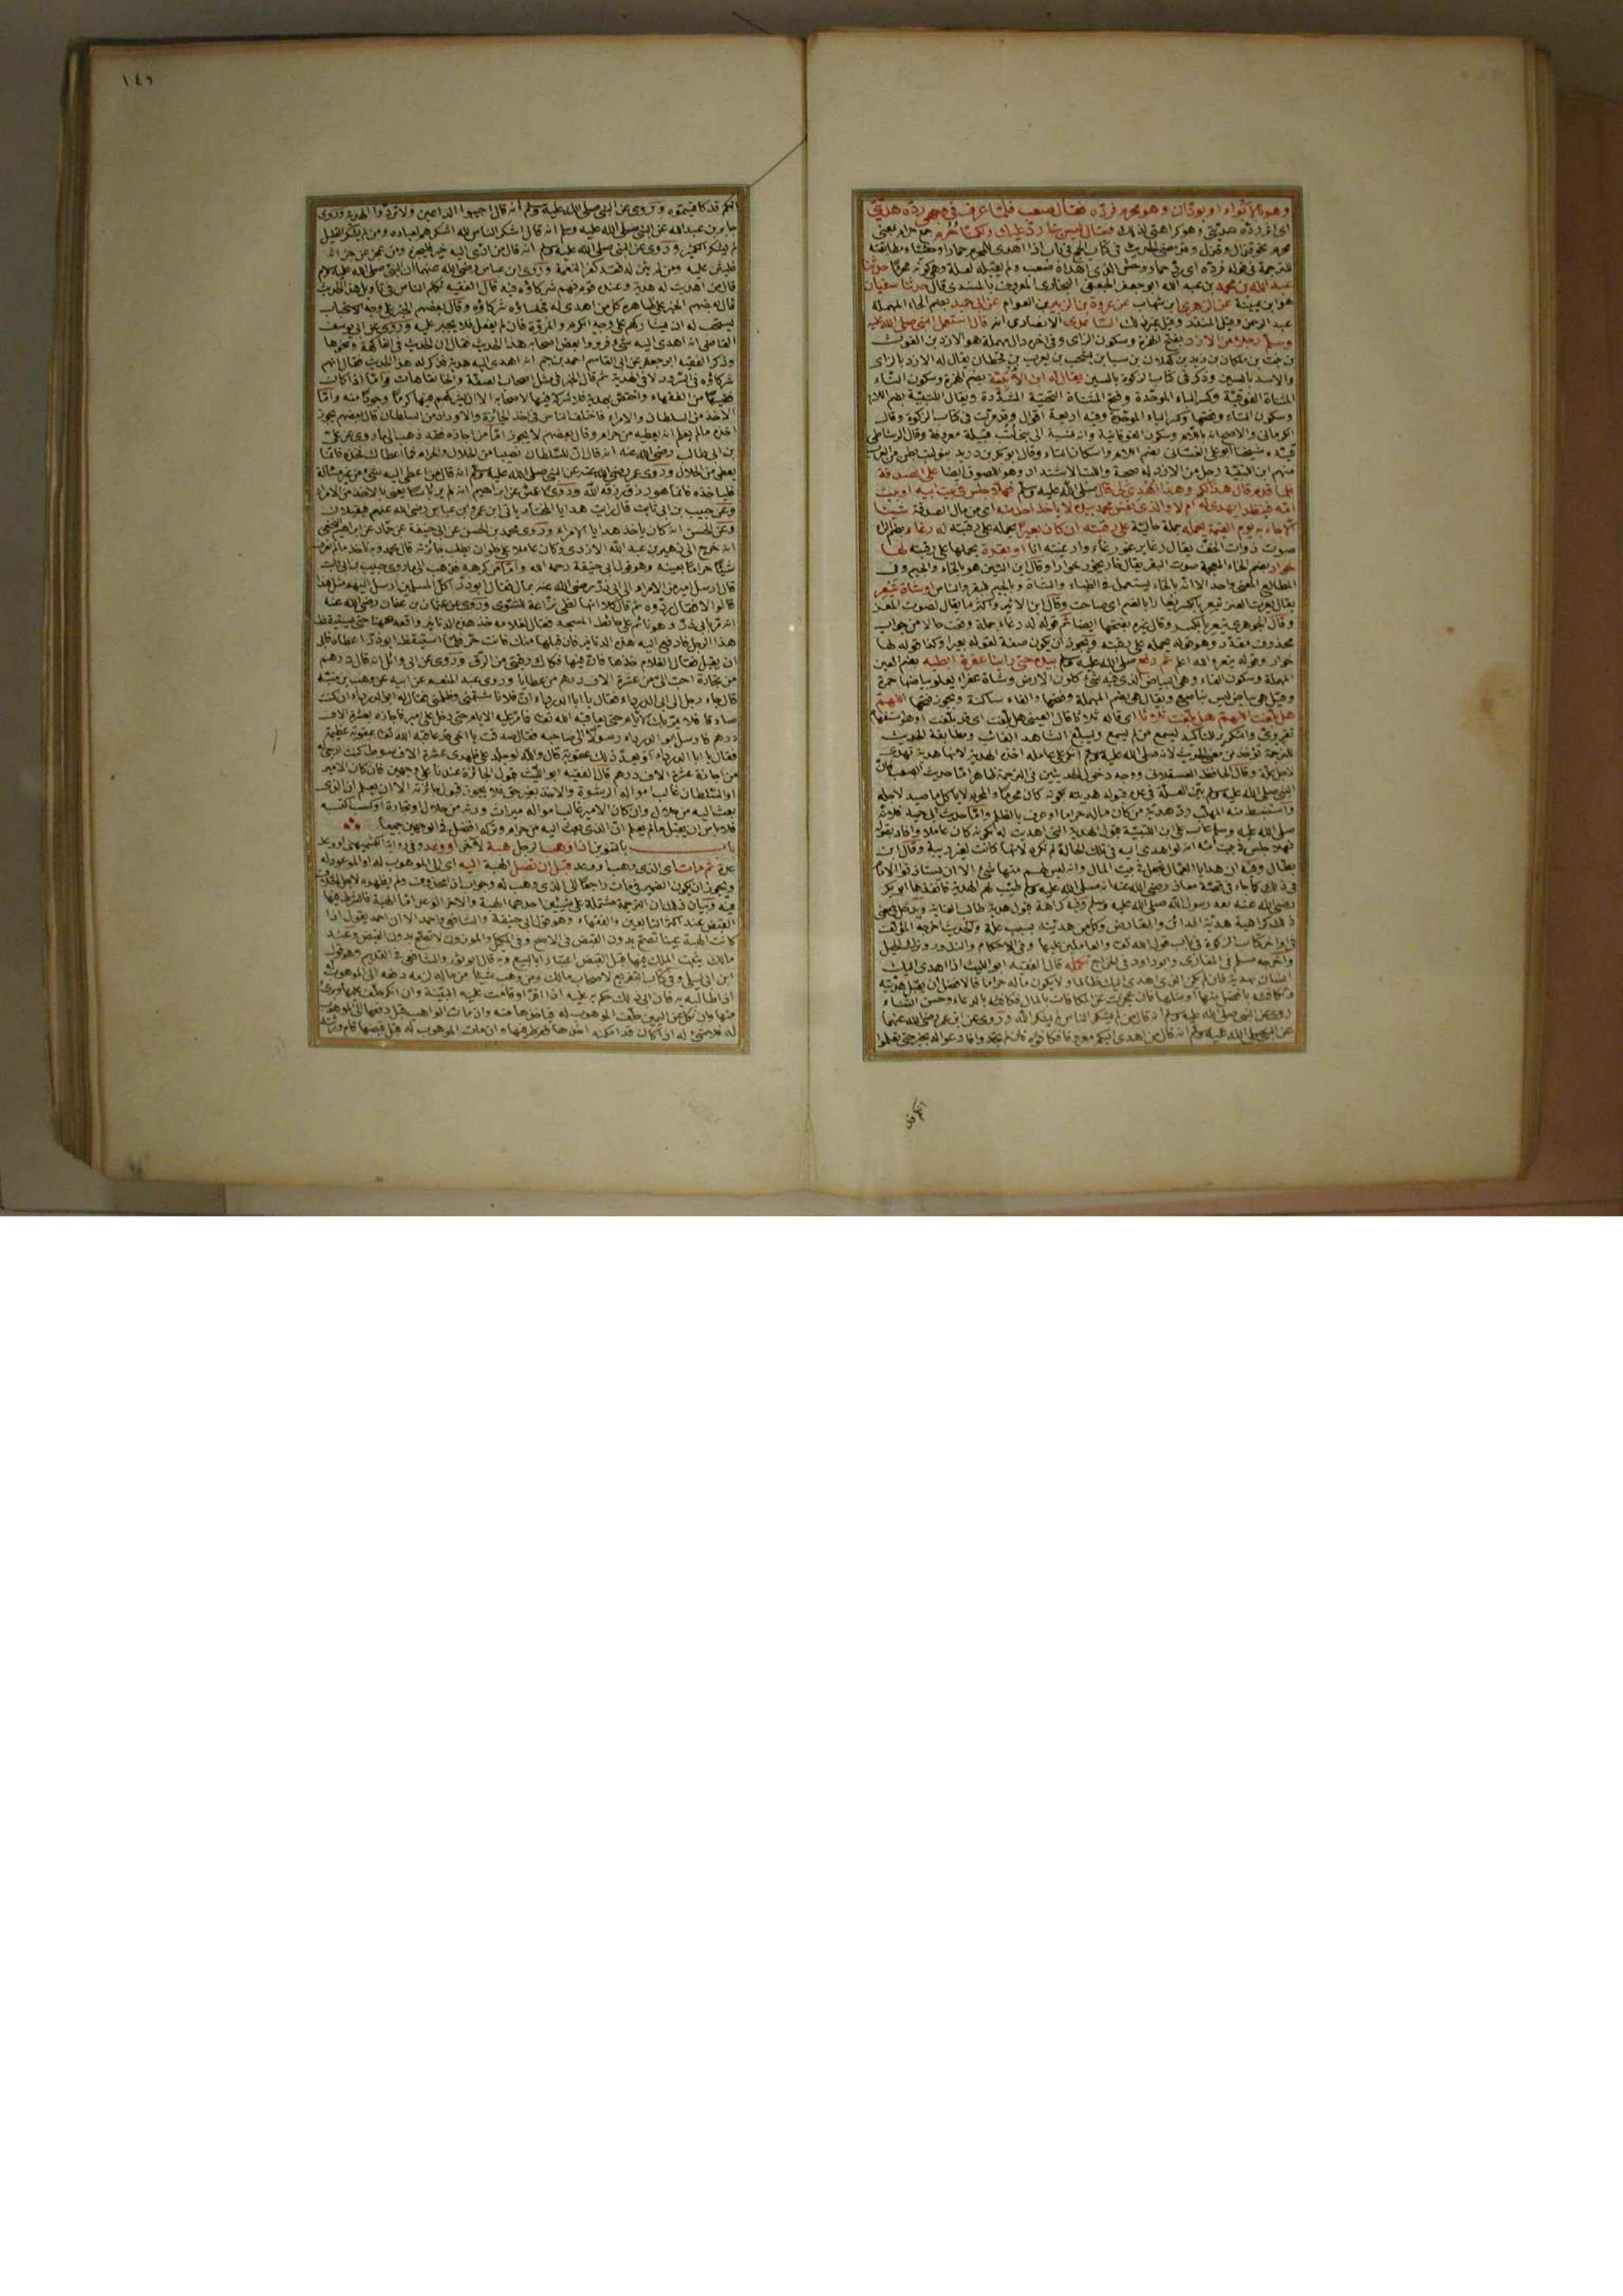 وهو بالابواء او بودان وهو محرم فرده فقال صعب فلما عرف في وجهي رده هديتي
اى اثر رده هديتى وهو كراهتى لذلك فقال ليس بنا رد عليك ولكنا حرم جمع حرام بمعنى
محرم نحو قذال وقذل وقد مضى الحديث فى كتاب الحج فى باب اذا اهدى للمحرم حمارا وحشيا ومطابقته
للترجمة فى قوله فرده اى رد حمار وحش الذى اهداه صعب ولم يقبله لعلة وهى كونه محرما حدثنا
عبد الله بن محمد بن عبد الله ابو جعفر الجعفى البخارى المعروف بالمسندى قال حدثنا سفيان
هو ابن عيينة عن الزهرى ابن شهاب عن عروة بن الزبير بن العوام عن ابى حميد بضم الحاء المهملة
عبد الرحمن وقيل المنذر وقيل غير ذلك الساعدى الانصارى انه قال استعمل النبى صلى الله عليه
وسلم رجلا من الازد بفتح الهمزة وسكون الزاى وفى اخره دال مهملة هو الازد بن الغوث
بن نبت بن ملكان بن زيد بن كهلان بن سبا بن يشجب بن يعرب بن قحطان يقال له الازد بالزاى
والاسد بالسين وذكر فى كتاب الزكوة بالسين يقال له ابن الاتبية بضم الهمزة وسكون التاء
المثناة الفوقية وكسر الباء الموحدة وفتح المثناة التحتية المشددة ويقال اللتبية بضم اللام
وسكون التاء وفتحها وكسر الباء الموحدة وفيه اربعة اقوال وقد مرت فى كتاب الزكوة وقال
الكرمانى والاصح انه باللام وسكون الفوقانية وانه نسبة الى بنى لتب قبيلة معروفة وقال الرشاطى
شيخنا ابو على الغسانى بضم اللام واسكان التاء وقال ابو بكر بن دريد بنو لتب بطن من العرب
منهم ابن اللتبية رجل من الازد له صحبة واللتب الاشتداد وهو اللصوق ايضا على الصدقة
فلما قدم قال هذا لكم وهذا اهدى لى قال صلى الله عليه وسلم فهلا جلس فى بيت ابيه او بيت
امه فينظر ايهدى له ام لا والذى نفس محمد بيده لا ياخذ احد منه اى من مال الصدقة شيئا
الا جاء به يوم القيمة يحمله جملة حالية على رقبته ان كان بعيرا يحمله على رقبته له رغاء بضم الراء
صوت ذوات الخف يقال رغا يرغو رغاء وارغيته انا او بقرة يحملها على رقبته لها
خوار بضم الخاء المعجمة صوت البقر يقال خار يخور خوارا وقال ابن التين هو بالخاء والجيم وفى
المطالع المعنى واحد الا انه بالخاء يستعمل فى الظباء والشاة وبالجيم للبقر والناس او شاة تيعر
يقال يعرت العنز تيعر بالكسر يعارا بالضم اى صاحت وقال ابن الاثير واكثر ما يقال لصوت المعز
وقال الجوهرى تيعر بالكسر وقال غيره بفتحها ايضا ثم قوله له رغاء جملة وقعت حالا من جواب
محذوف مقدر وهو قوله يحمله على رقبته ويجوز ان يكون صفة لقوله بعيرا وكذا قوله لها
خوار وقوله تيعر والله اعلم ثم رفع صلى الله عليه وسلم بيده حتى راينا عفرة ابطيه بضم العين
المهملة وسكون الفاء وهى البياض الذى فيه شئ كلون الارض وشاة عفراء يعلو بياضها حمرة
وقيل هى بياض ليس بناصع ويقال هى بضم المهملة وفتحها والفاء ساكنة ويجوز فتحها اللهم
هل بلغت اللهم هل بلغت ثلاثا اى قاله ثلاثا قال العينى هل بلغت اى قد بلغت او هو استفهام
تقريرى والتكرير للتاكيد ليسمع من لم يسمع ويبلغ الشاهد الغائب ومطابقة الحديث
للترجمة تؤخذ من معنى الحديث لانه صلى الله عليه وسلم انكر على عامله اخذه الهدية لانها هدية تهدى
لاجل علة وقال الحافظ العسقلانى ووجه دخول الحديثين فى الترجمة ظاهر اما حديث الصعب فلان
النبى صلى الله عليه وسلم بين العلة فى عدم قبوله هديته بكونه كان محرما والمحرم لا ياكل ما صيد لاجله
واستنبط منه المهلب رد هدية من كان ماله حراما او عرف بالظلم واما حديث ابى حميد فلانه
صلى الله عليه وسلم عاب على ابن اللتبية قبول الهدية التى اهديت له لكونه كان عاملا وافاد بقوله
فهلا جلس فى بيت امه انه لو اهدى اليه فى تلك الحالة لم تكره لانها كانت لغير ريبة وقال ابن
بطال وفيه ان هدايا العمال تجعل فى بيت المال وانه ليس لهم منها شئ الا ان يستاذنوا الامام
فى ذلك كما جاء فى قصة معاذ رضى الله عنه انه صلى الله عليه وسلم طيب له الهدية فانفذها ابو بكر
رضى الله عنه بعد رسول الله صلى الله عليه وسلم وفيه كراهة قبول هدية طالب العناية ويدخل فى معنى
ذلك كراهية هدية المدان والمقارض وكل من هديته بسبب علة والحديث اخرجه المؤلف
فى اواخر كتاب الزكوة فى باب قول الله تعالى والعاملين عليها وفى الاحكام والنذور وترك الحيل
واخرجه مسلم فى المغازى وابو داود فى الخراج تكملة قال الفقيه ابو الليث اذا اهدى اليك
انسان بهدية فان لم يكن الذى اهدى اليك ظالما ولا يكون ماله حراما فالافضل ان يقبل هديته
وتكافئه بافضل منها او مثلها فان عجزت عن المكافات بالمال فكافئه بالدعاء وحسن الثناء
روى عن النبى صلى الله عليه وسلم انه قال من لم يشكر الناس لم يشكر الله وروى عن ابن عمر رضى الله عنهما
عن النبى صلى الله عليه وسلم انه قال من اهدى اليكم معروفا فكافئوه فان لم تجدوا فادعوا له بخير حتى تعلموا
انكم قد
١٤٦
انكم قد كافيتموه وروى عن النبى صلى الله عليه وسلم انه قال اجيبوا الداعين ولا تردوا الهدية وروى
جابر بن عبد الله عن النبى صلى الله عليه وسلم انه قال اشكر الناس لله اشكرهم لعباده ومن لم يشكر القليل
لم يشكر الكثير وروى عن النبى صلى الله عليه وسلم انه قال من اتى اليه خير فليجزه ومن عجز عن جزائه
فليثن عليه ومن لم يثن له فقد كفر النعمة وروى ابن عباس رضى الله عنهما ان النبى صلى الله عليه وسلم
قال من اهديت له هدية وعنده قوم فهم شركاؤه فيه قال الفقيه تكلم الناس فى تاويل هذا الحديث
قال بعضهم الخبر على ظاهره كل من اهدى له فجلساؤه شركاؤه وقال بعضهم الخبر على وجه الاستحباب
يستحب له ان يشاركهم على وجه الكرم والمروة فان لم يفعل فلا يجبر عليه وروى عن ابى يوسف
القاضى انه اهدى اليه شئ فرووا بعض اصحابه هذا الحديث فقال ان الحديث فى الفاكهة ونحوها
وذكر الفقيه ابو جعفر عن ابى القاسم احمد بن حم انه اهدى اليه هدية فذكر له هذا الحديث فقال انهم
شركاؤه فى السرور لا فى الهدية ثم قال الخبر فى مثل اصحاب الصفة والخانقاهات واما اذا كان
فقيها من الفقهاء واختص بهدية فلا شركة فيها لاصحابه الا ان يشركهم فيها كرما وجودا منه واما
الاخذ من السلطان والامراء فاختلف الناس فى اخذ الجائزة والادرار من السلطان قال بعضهم يجوز
اخذه مالم يعلم انه يعطيه من حرام وقال بعضهم لا يجوز اما من اجازه فقد ذهب الى ما روى عن على
بن ابى طالب رضى الله عنه انه قال ان للسلطان نصيبا من الحلال والحرام فما اعطاك فخذه فانما
يعطى من الحلال وروى عمر رضى الله عنه عن النبى صلى الله عليه وسلم انه قال من اعطى اليه شئ من غير مسالة
فلياخذه فانما هو رزق رزقه الله وروى الاعمش عن ابراهيم انه لم ير باسا يعنى بالاخذ من الامراء
وعن حبيب بن ابى ثابت قال رايت هدايا المختار ياتى ابن عمر وابن عباس رضى الله عنهم فيقبلان
وعن الحسن انه كان ياخذ هدايا الامراء وروى محمد بن الحسن عن ابى حنيفة عن حماد عن ابراهيم النخعى
انه خرج الى زهير بن عبد الله الازدى وكان عاملا على حلوان يطلب جائزته قال محمد وبه ناخذ مالم نعرف
شيئا حراما بعينه وهو قول ابى حنيفة رحمه الله واما من كرهه فذهب الى ما روى حبيب بن ابى ثابت
قال ارسل امير من الامراء الى ابى ذر رضى الله عنه بمال فقال ابو ذر اكل المسلمين ارسل اليهم مثل هذا
قالوا لا فقال ردوه ثم قال كلا انها لظى نزاعة للشوى وروى عن عثمان بن عفان رضى الله عنه
انه مر بابى ذر وهو نائم على حائط المسجد فقال لغلامه خذ هذه الدنانير واقعد ههنا حتى يستيقظ
هذا الرجل فادفع اليه هذه الدنانير فان قبلها منك فانت حر فلما استيقظ ابو ذر اعطاه فابى
ان يقبل فقال الغلام خذها فان فيها فكاك رقبتى من الرق وروى عن ابى وائل انه قال درهم
من تجارة احب الى من عشرة الاف درهم من عطايا وروى عبد المنعم عن ابيه عن وهب بن منبه
قال جاء رجل الى ابى الدرداء فقال يا ابا الدرداء ان فلانا شتمنى وظلمنى فقال له ابو الدرداء ان كنت
صادقا فلا يمر بك الايام حتى يعاقبه الله تعالى فامر عليه الايام حتى دخل على امير فاجازه بعشرة الاف
درهم فارسل ابو الدرداء رسولا الى صاحبه فقال صدقت يا اخى قد عاقبه الله تعالى عقوبة عظيمة
فقال يا ابا الدرداء او يعد ذلك عقوبة قال والله لو جلد على ظهره عشرة الاف سوط كنت ارجى له
من اجازة عشرة الاف درهم قال الفقيه ابو الليث قبول الجائزة عندنا على وجهين فان كان الامير
او السلطان غالب امواله الرشوة والاخذ بغير حق فلا يجوز قبول جائزته الا ان يعلم ان الذى
بعث اليه من حلال وان كان الامير غالب امواله ميراث ورثه من حلال او تجارة او كسب اكتسبه
فلا باس ان يقبل مالم يعلم ان الذى بعث اليه من حرام وتركه افضل فى الوجهين جميعا
باب بالتنوين اذا وهب الرجل هبة لآخر او وعد وفى رواية الكشميهنى او وعد
عدة ثم مات اى الذى وهب او وعد قبل ان تصل الهبة اليه اى الى الموهوب له او الموعود له
ويجوز ان يكون الضمير فى مات راجعا الى الذى وهب له وجواب اذا محذوف ولم يظهره لاجل الخلاف
فيه وبيان ذلك ان الترجمة مشتملة على شيئين احدهما الهبة والاخر الوعد اما الهبة فالشرط فيها
القبض عند اكثر التابعين والفقهاء وهو قول ابى حنيفة والشافعى واحمد الا ان احمد يقول اذا
كانت الهبة عينا تصح بدون القبض فى الاصح وفى المكيل والموزون لا تصح بدون القبض وعند
مالك يثبت الملك فيها قبل القبض اعتبارا بالبيع وبه قال ابو ثور والشافعى فى القديم وهو قول
ابن ابى ليلى وفى كتاب التفريع لاصحاب مالك ومن وهب شيئا من ماله لزمه دفعه الى الموهوب له
اذا طالبه به فان ابى ذلك حكم به عليه اذا اقر او قامت عليه البينة وان انكر حلف عليها وبرئ
منها وان نكل عن اليمين حلف الموهوب له فياخذها منه وان مات الواهب قبل دفعها الى الموهوب
له فلا شئ له اذا كان قد امكنه اخذها ففرط فيها وان مات الموهوب له قبل قبضها قام ورثته